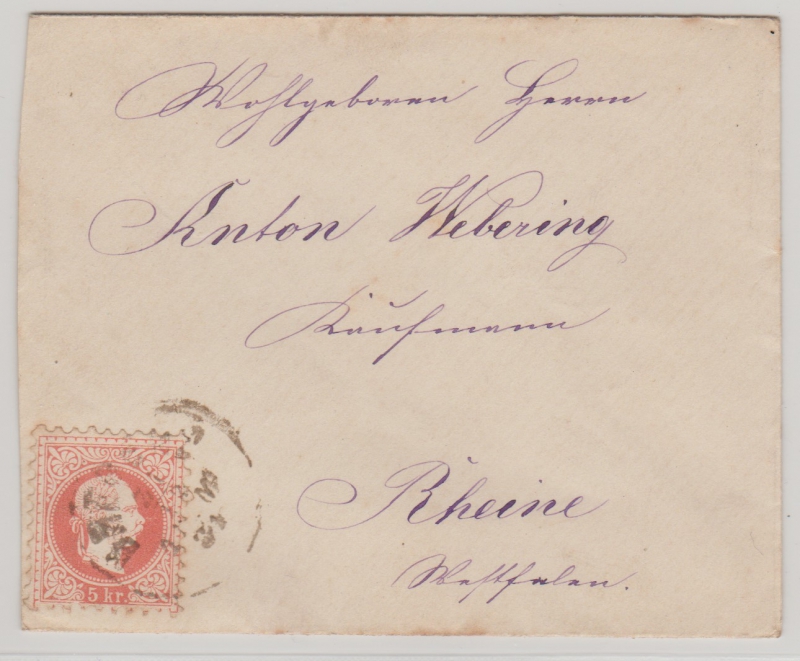 Wohlgeboren Herrn
Anton Webering
Kaufmann
Rheine
Westfalen.
5 kr.